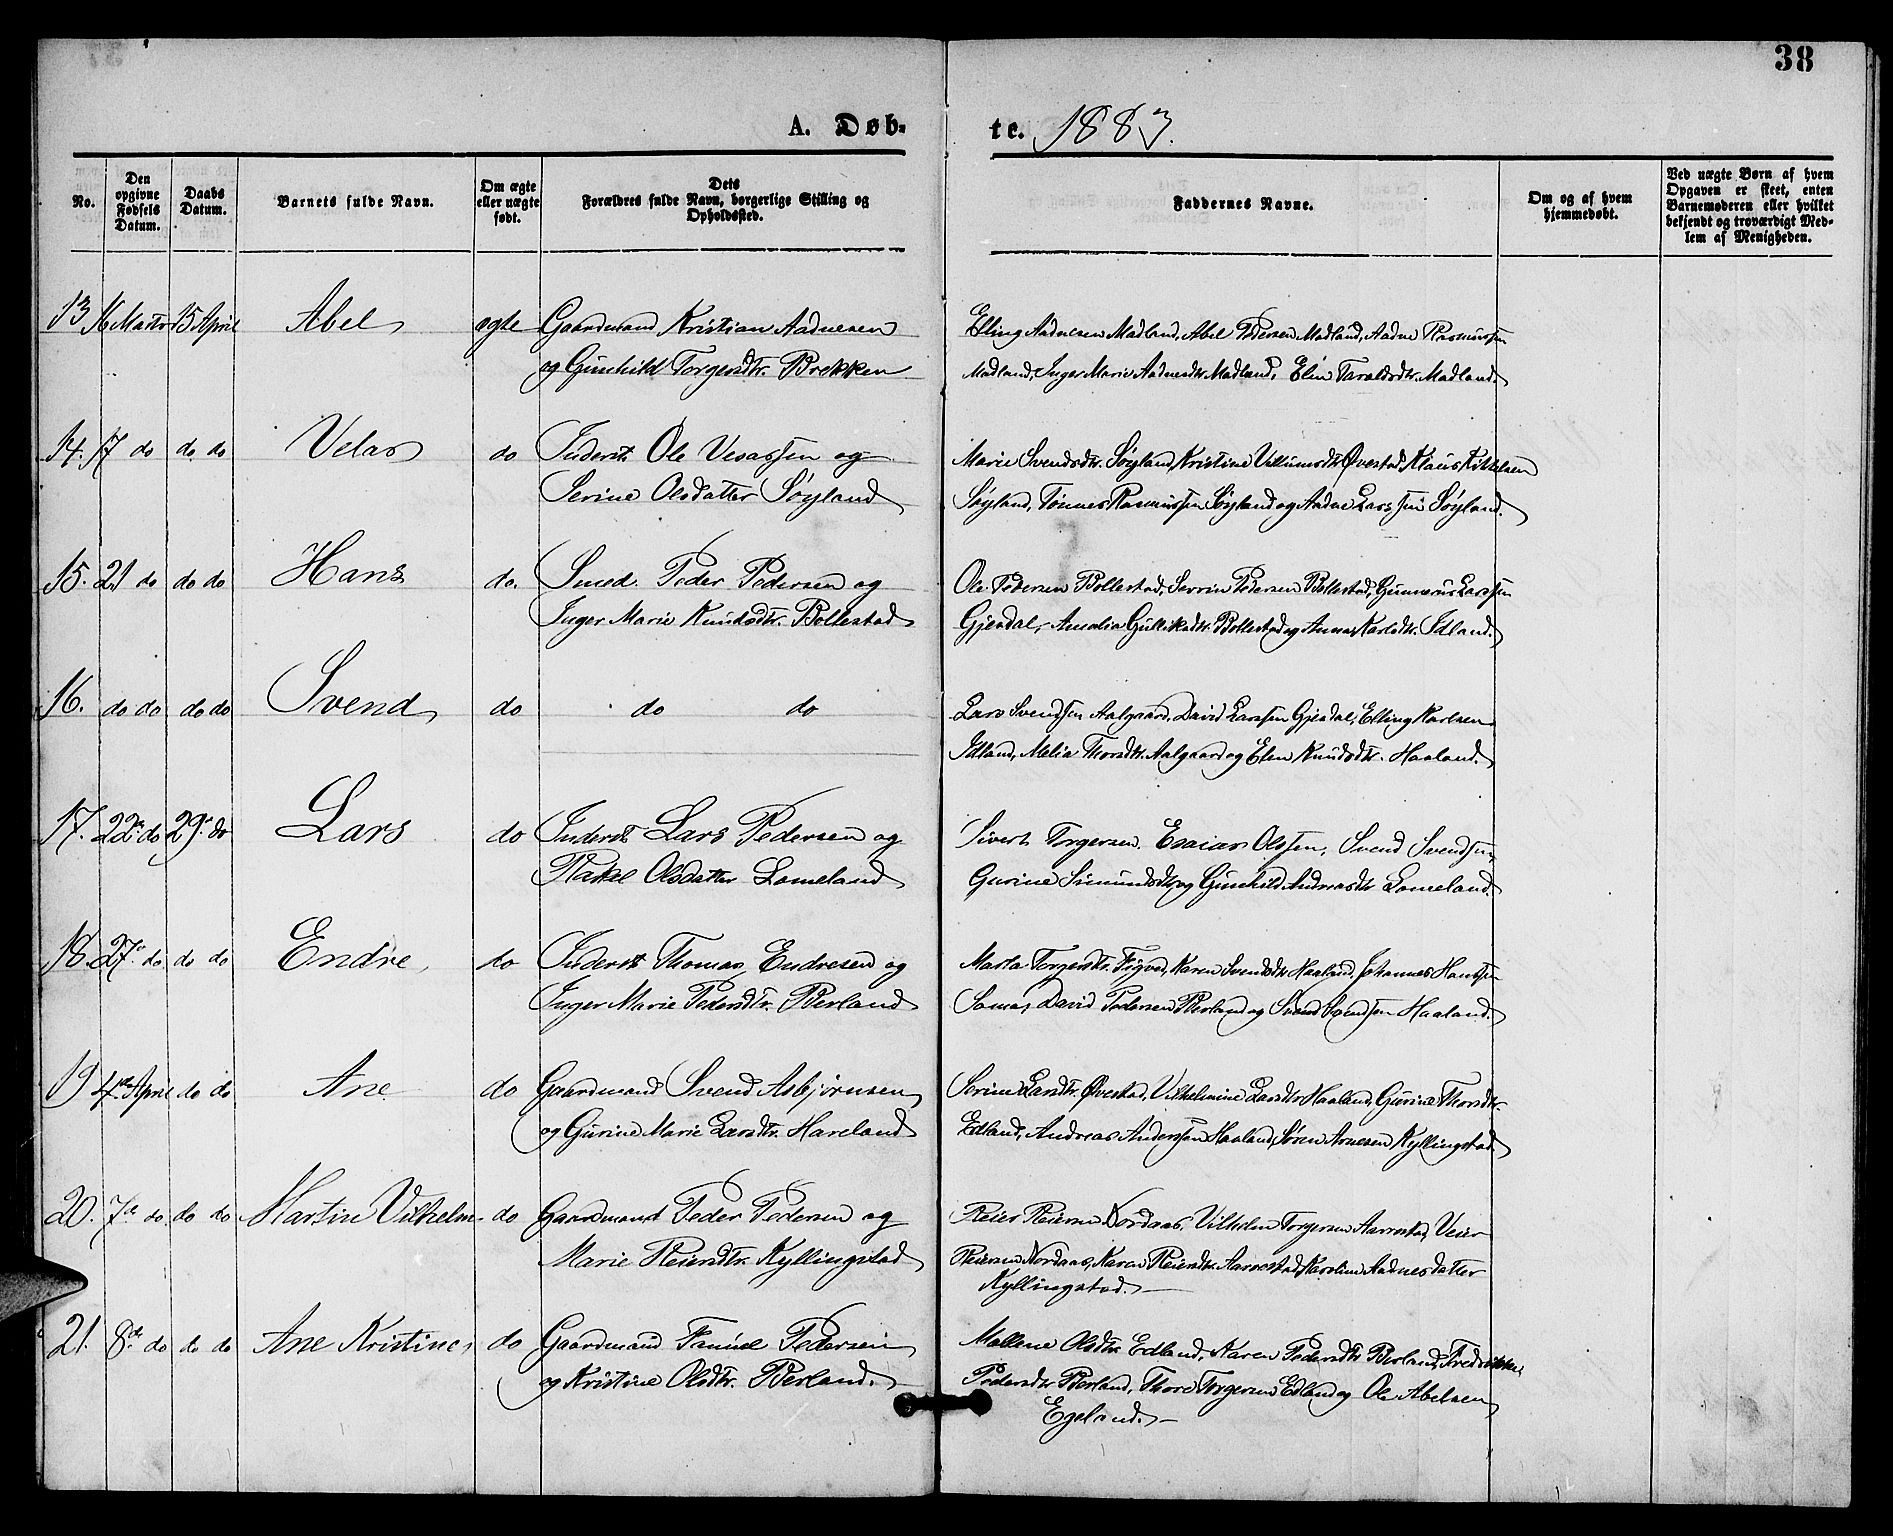 38
A. Døb-
te. 1883.
No.
Den opgivne Fødsels Datum.
Daabs Datum.
Barnets fulde Navn.
Om ægte eller uægte født.
Dets Forældres fulde Navn, borgerlige Stilling og Opholdssted.
Faddernes Navne.
Om og af hvem hjemmedøbt.
Ved uægte Børn af hvem Opgaven er skeet, enten Barnemoderen eller hvilket bekjendt og troværdigt Medlem af Menigheden.
13 16 Marts 15 April Abel ægte Gaardmand Kristian Aadnesen
og Gunhild Torgersdtr. Brekken
Elling Aadnesen Madland, Abel Pedersen Madland, Aadne Rasmussen
Madland, Inger Marie Aadnesdtr. Madland, Elin Taraldsdtr. Madland.
14. 17 do do do Velas do Inderst Ole Vesassen og
Serine Olsdatter Søyland
Marie Svendsdtr. Søyland, Kristine Villumsdtr. Øvestad, Klaus Kittelsen
Søyland, Tønnes Rasmussen Søyland og Aadne Larssen Søyland.
15. 21 do do do Hans do. Smed Peder Pedersen og
Inger Marie Knudsdtr. Bollestad
Ole Pedersen Bollestad, Serrin Pedersen Bollestad, Gunnerus Larssen
Gjesdal, Amalia Gulliksdtr. Bollestad og Anna Karlsdtr. Idland.
16. do do do do Svend do do do
Lars Svendsen Aalgaard, David Larssen Gjesdal, Elling Karlsen
Idland, Malia Thorsdtr. Aalgaard og Elen Knudsdtr. Haaland.
17. 22de do 29de do Lars do Inderst Lars Pedersen og
Rakel Olsdatter Lomeland
Sivert Torgersen, Esaias Olssen, Svend Svendsen
Gurine Simundsdtr. og Gunhild Andreasdtr. Lomeland.
18. 27de do do do Endre do Inderst Thomas Endresen og
Inger Marie Pedersdtr. Berland
Marta Torgersdtr. Figved, Karen Svendsdtr. Haaland, Johannes Hanssen
Somas, David Pedersen Berland og Svend Svendsen Haaland.
19 4de April do do Ane do Gaardmand Svend Asbjørnsen
og Gurine Marie Larsdtr. Haveland
Serine Larsdtr. Øvestad, Vilhelmine Larsdtr. Haaland, Gurine Thorsdtr.
Edland, Andreas Anderssen Haaland, Søren Arnesen Kyllingstad.
20. 7de do do do Martin Vilhelm do Gaardmand Peder Pedersen og
Marie Reiersdtr. Kyllingstad
Reier Reiersen Nordaas, Vilhelm Torgersen Aarrestad, Veier
Reiersen Nordaas, Karen Reiersdtr. Aarrestad, Karoline Aadnesdatter
Kyllingstad.
21. 8de do do do Ane Kristine do Gaardmand Samuel Pedersen
og Kristine Olsdtr. Berland.
Mallene Olsdtr. Edland, Karen Pedersdtr. Berland, Fredrikke
Pedersdtr. Berland, Thore Torgersen Edland og Ole Abelsen
Egeland.